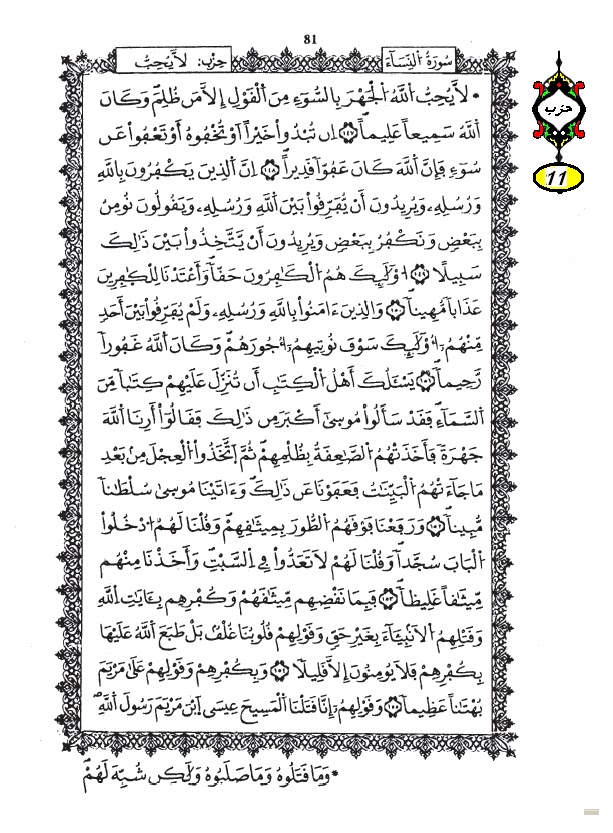 81
سُورَةُ النِّسَآءِ
حِزْب: لَا يُحِبُّ
حزب
11
* لَّا يُحِبُّ اللَّهُ الْجَهْرَ بِالسُّوٓءِ مِنَ الْقَوْلِ إِلَّا مَن ظُلِمَ وَكَانَ
اللَّهُ سَمِيعاً عَلِيماً ١٤٧ إِن تُبْدُوا خَيْراً أَوْ تُخْفُوهُ أَوْ تَعْفُوا عَن
سُوٓءٍ فَإِنَّ اللَّهَ كَانَ عَفُوّاً قَدِيراً ١٤٨ إِنَّ الَّذِينَ يَكْفُرُونَ بِاللَّهِ
وَرُسُلِهِ وَيُرِيدُونَ أَنْ يُّفَرِّقُوا بَيْنَ اللَّهِ وَرُسُلِهِ وَيَقُولُونَ نُومِنُ
بِبَعْضٍ وَنَكْفُرُ بِبَعْضٍ وَيُرِيدُونَ أَنْ يَّتَّخِذُوا بَيْنَ ذَٰلِكَ
سَبِيلًا ١٤٩ أُوْلَٰٓئِكَ هُمُ الْكَٰفِرُونَ حَقّاً وَأَعْتَدْنَا لِلْكَٰفِرِينَ
عَذَاباً مُّهِيناً ١٥٠ وَالَّذِينَ ءَامَنُوا بِاللَّهِ وَرُسُلِهِ وَلَمْ يُفَرِّقُوا بَيْنَ أَحَدٍ
مِّنْهُمُ أُوْلَٰٓئِكَ سَوْفَ نُوتِيهِمُ أُجُورَهُمْ وَكَانَ اللَّهُ غَفُوراً
رَّحِيماً ١٥١ يَسْـَٔلُكَ أَهْلُ الْكِتَٰبِ أَن تُنَزِّلَ عَلَيْهِمْ كِتَٰباً مِّنَ
السَّمَآءِ فَقَدْ سَأَلُوا مُوسَىٰٓ أَكْبَرَ مِن ذَٰلِكَ فَقَالُوٓا أَرِنَا اللَّهَ
جَهْرَةً فَأَخَذَتْهُمُ الصَّٰعِقَةُ بِظُلْمِهِمْ ثُمَّ اتَّخَذُوا الْعِجْلَ مِنْ بَعْدِ
مَا جَآءَتْهُمُ الْبَيِّنَٰتُ فَعَفَوْنَا عَن ذَٰلِكَ وَءَاتَيْنَا مُوسَىٰ سُلْطَٰناً
مُّبِيناً ١٥٢ وَرَفَعْنَا فَوْقَهُمُ الطُّورَ بِمِيثَٰقِهِمْ وَقُلْنَا لَهُمُ ادْخُلُوا
الْبَابَ سُجَّداً وَقُلْنَا لَهُمْ لَا تَعَدُّوا فِي السَّبْتِ وَأَخَذْنَا مِنْهُم
مِّيثَٰقاً غَلِيظاً ١٥٣ فَبِمَا نَقْضِهِم مِّيثَٰقَهُمْ وَكُفْرِهِم بِـَٔايَٰتِ اللَّهِ
وَقَتْلِهِمُ الْأَنْبِيَآءَ بِغَيْرِ حَقٍّ وَقَوْلِهِمْ قُلُوبُنَا غُلْفٌ بَلْ طَبَعَ اللَّهُ عَلَيْهَا
بِكُفْرِهِمْ فَلَا يُومِنُونَ إِلَّا قَلِيلًا ١٥٤ وَبِكُفْرِهِمْ وَقَوْلِهِمْ عَلَىٰ مَرْيَمَ
بُهْتَٰناً عَظِيماً ١٥٥ وَقَوْلِهِمُ إِنَّا قَتَلْنَا الْمَسِيحَ عِيسَى ابْنَ مَرْيَمَ رَسُولَ اللَّهِ
* وَمَا قَتَلُوهُ وَمَا صَلَبُوهُ وَلَٰكِن شُبِّهَ لَهُمْ